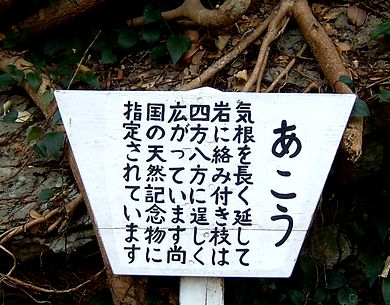 あこう
気根を長く延して
岩に絡み付き枝は
四方八方に逞しく
広がっています尚
国の天然記念物に
指定されています